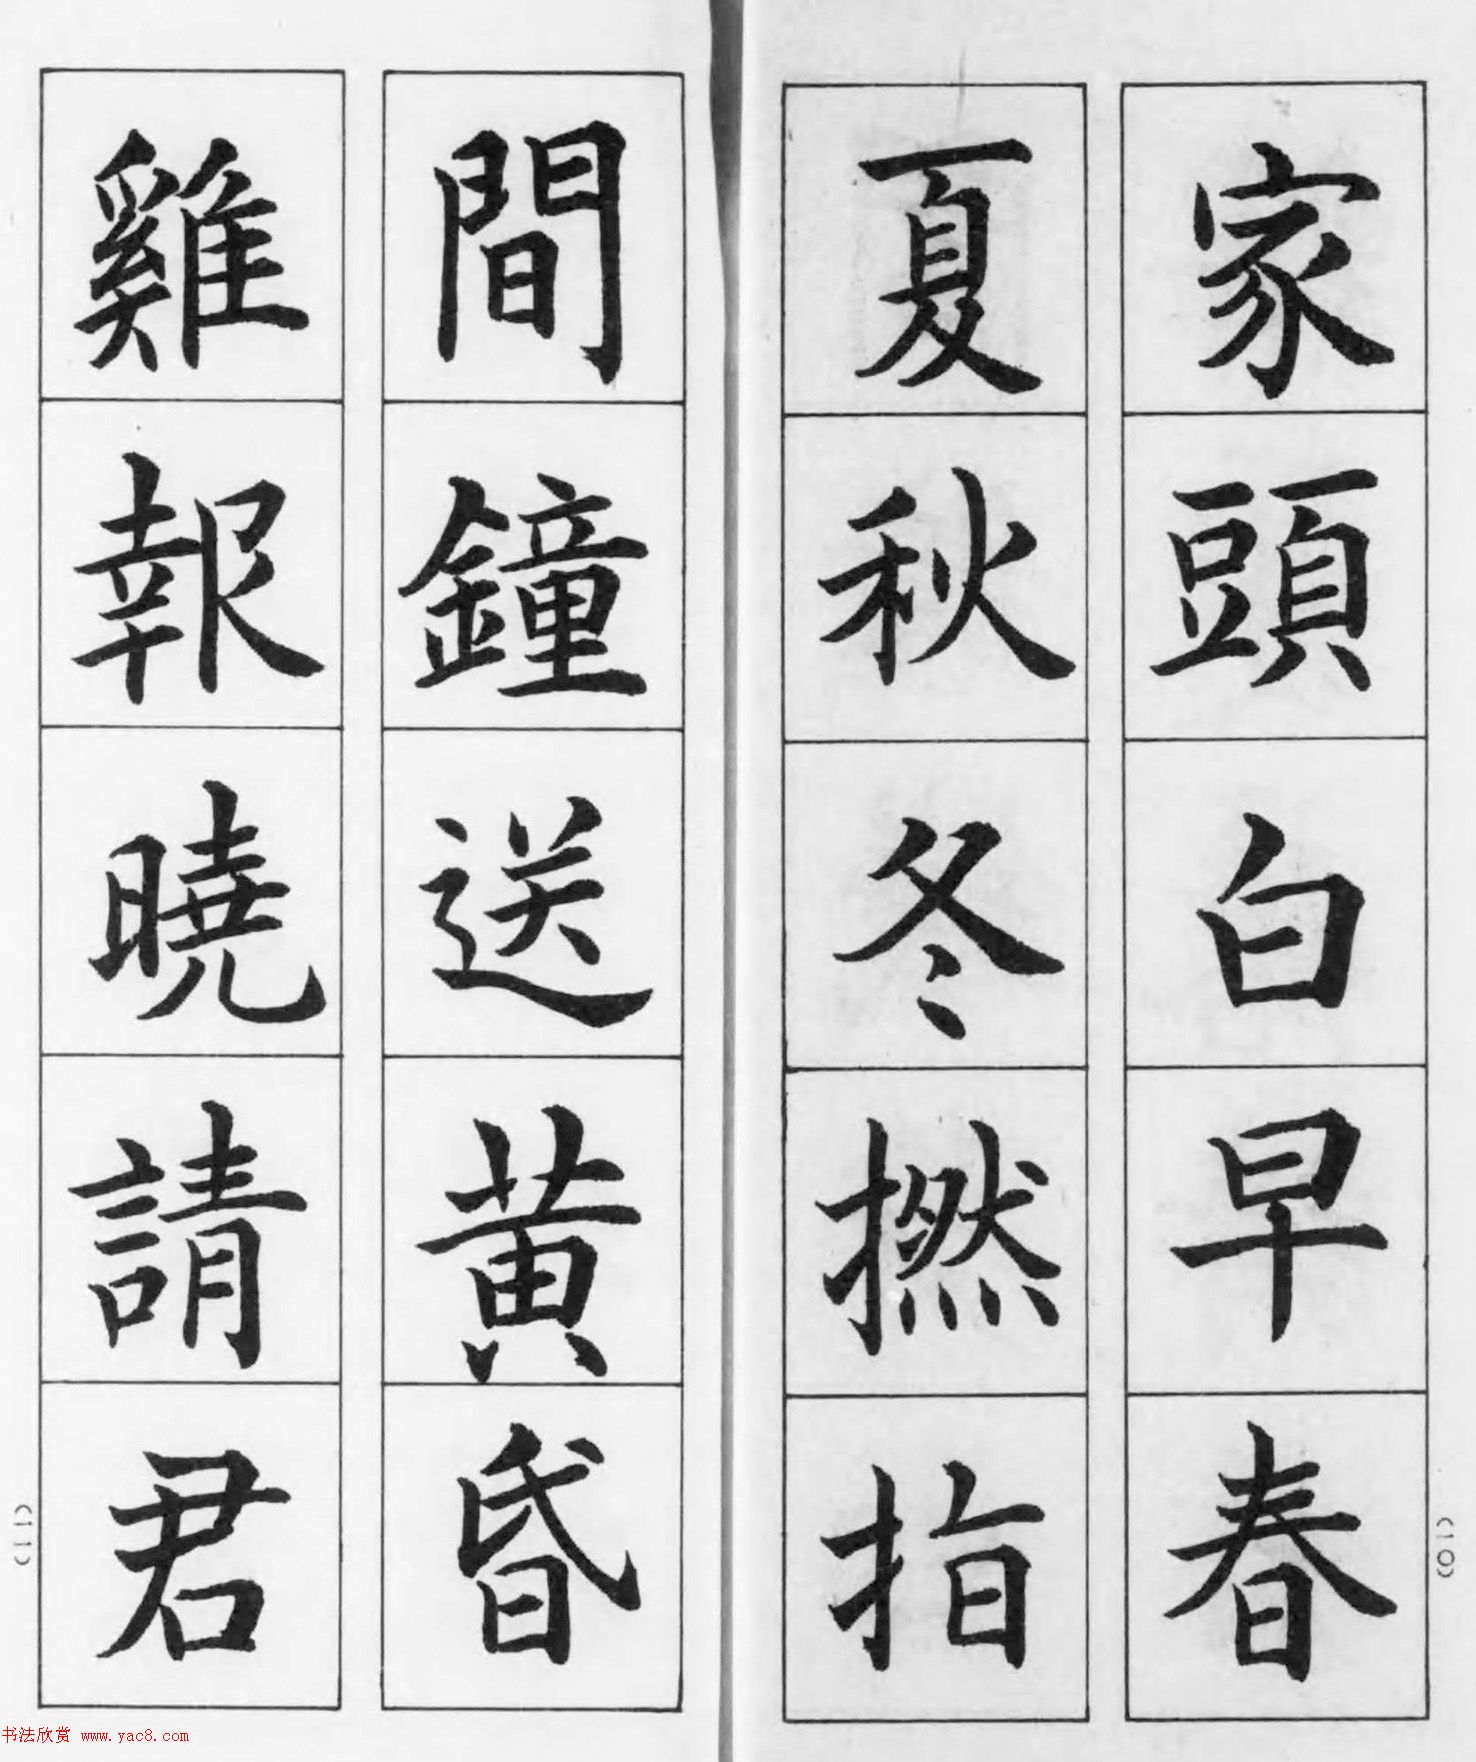 家頭白早春
夏秋冬撚指
間鐘送黃昏
雞報曉請君
(10)
(11)
书法欣赏 www.yac8.com